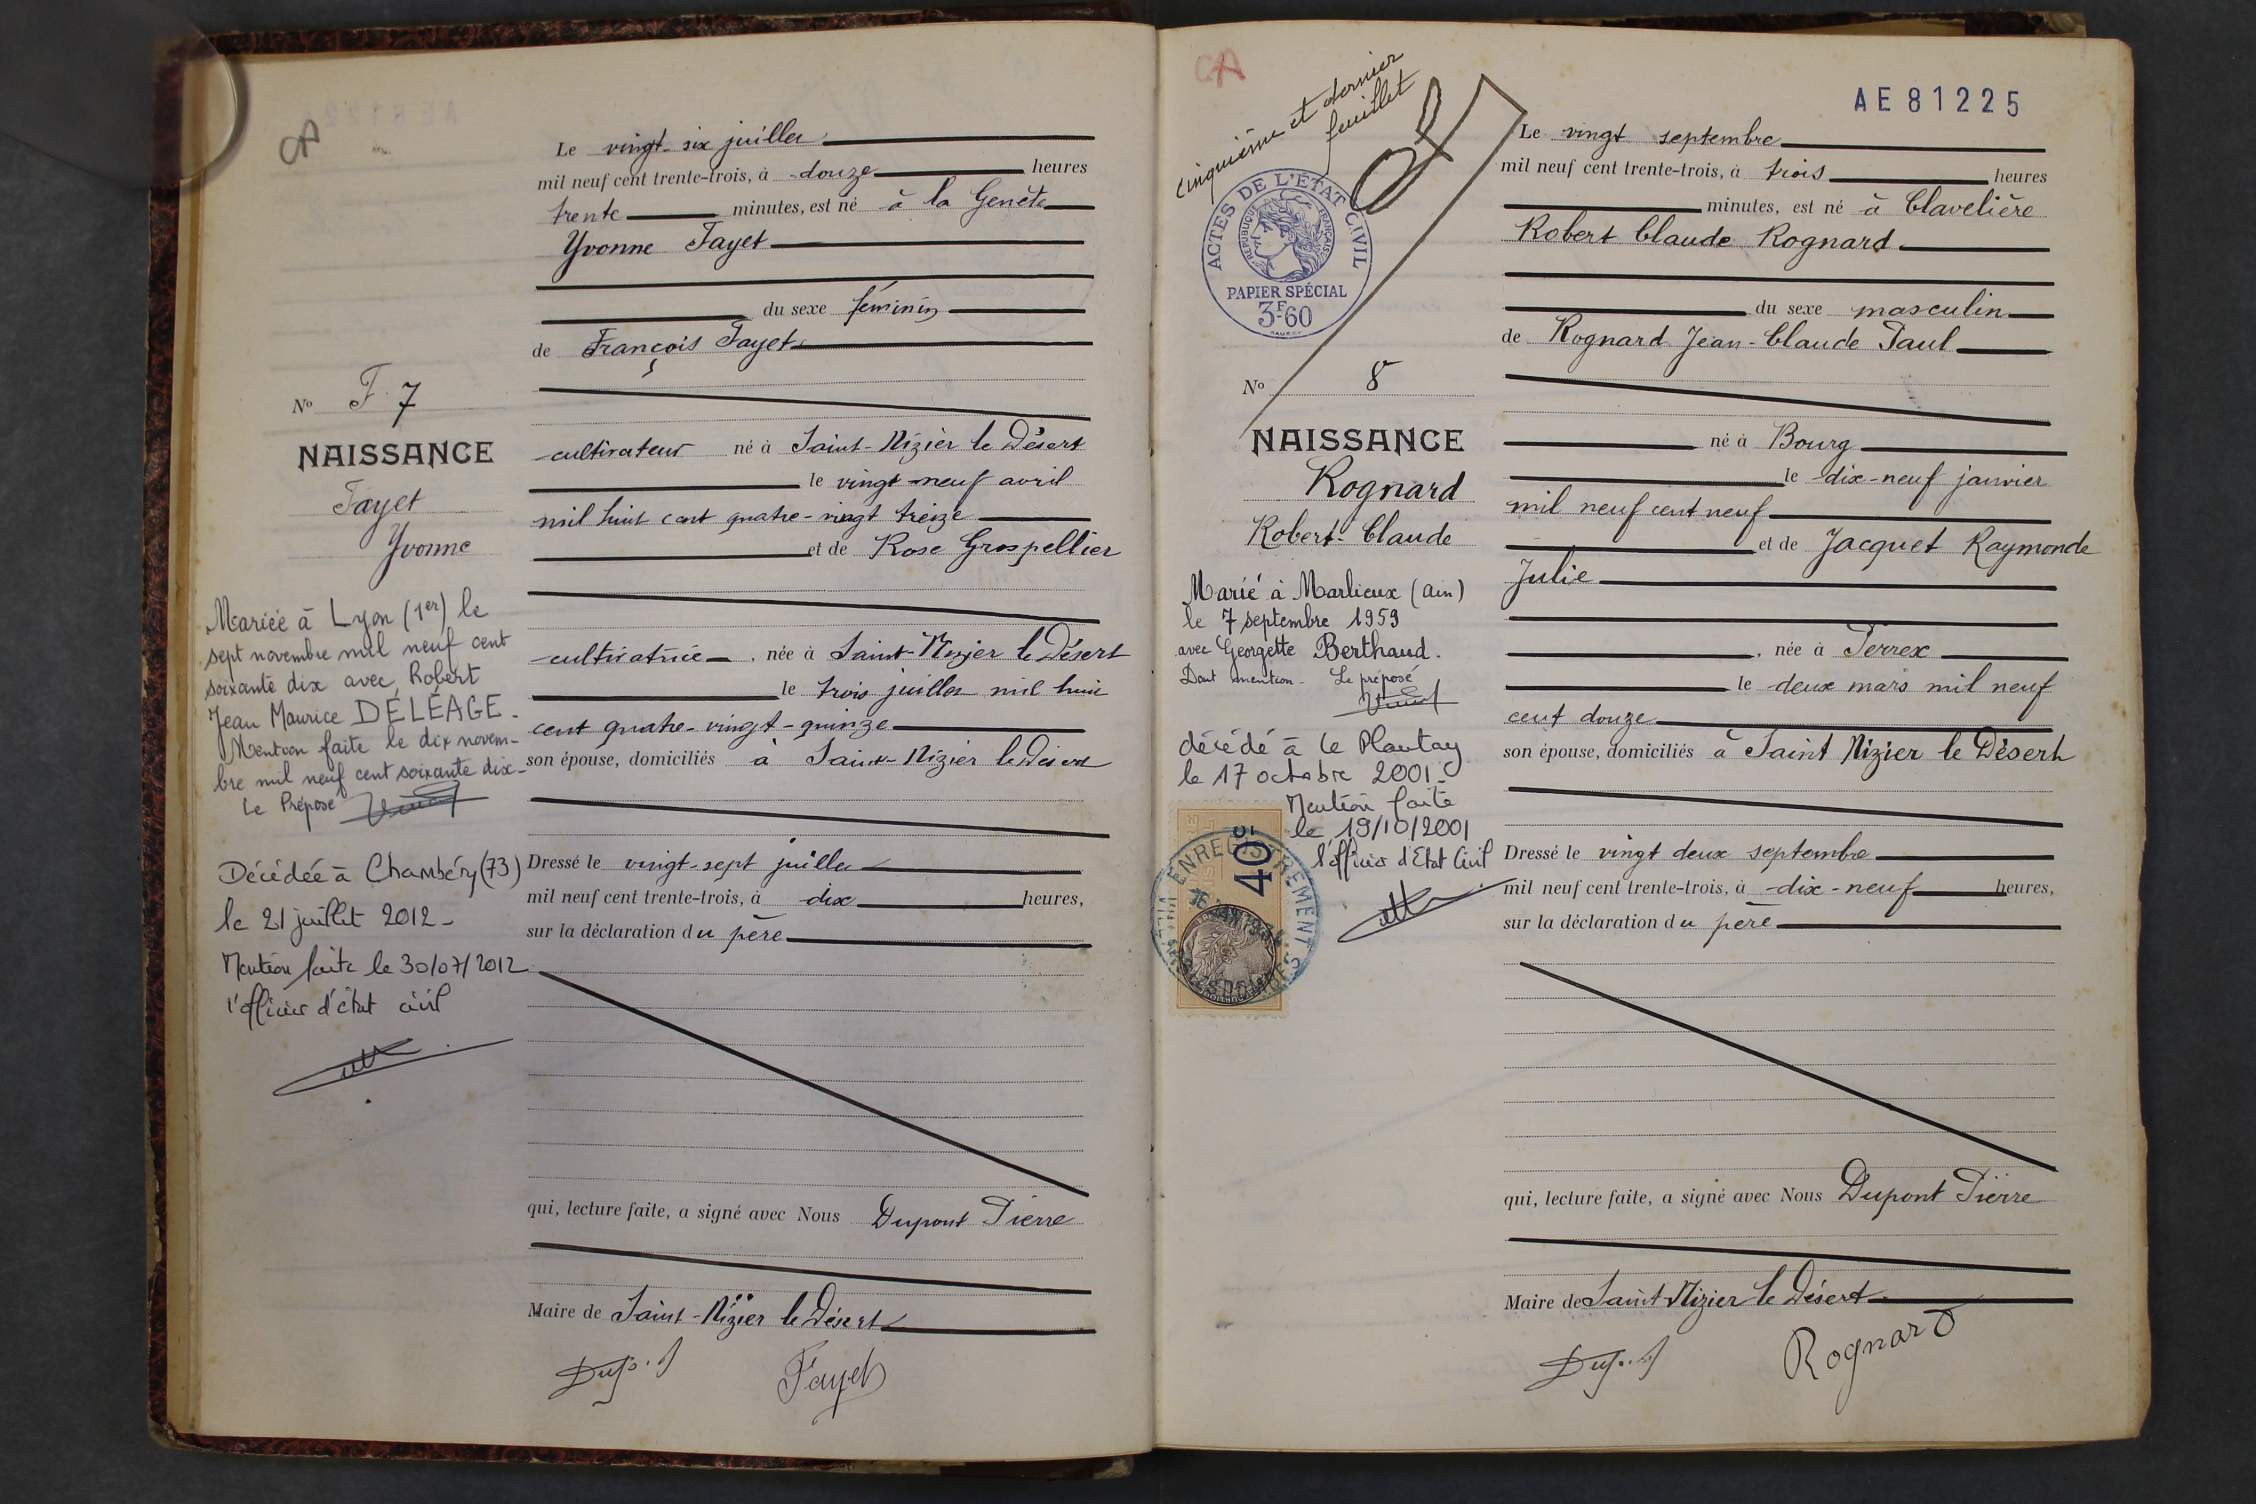 CA
Le vingt-six juillet
mil neuf cent trente-trois, à douze heures
trente minutes, est né à la Genète
Yvonne Fayet
du sexe féminin
de François Fayet
No F. 7
NAISSANCE
Fayet
Yvonne
cultivateur né à Saint-Nizier le Désert
le vingt-neuf avril
mil huit cent quatre-vingt treize
et de Rose Grospellier
cultivatrice, née à Saint-Nizier le Désert
le trois juillet mil huit
cent quatre-vingt-quinze
son épouse, domiciliés à Saint-Nizier le Désert
Dressé le vingt-sept juillet
mil neuf cent trente-trois, à dix heures,
sur la déclaration du père
qui, lecture faite, a signé avec Nous Dupont Pierre
Maire de Saint-Nizier le Désert
Fayet
Mariée à Lyon (1er) le
sept novembre mil neuf cent
soixante dix avec Robert
Jean Maurice DÉLÉAGE.
Mention faite le dix novem-
bre mil neuf cent soixante dix-
Le Préposé
Décédée à Chambéry (73)
le 21 juillet 2012-
Mention faite le 30/07/2012
l'officier d'état civil
CA
cinquième et dernier
feuillet
ACTES DE L'ÉTAT CIVIL
RÉPUBLIQUE FRANÇAISE
PAPIER SPÉCIAL
3F60
AE81225
Le vingt septembre
mil neuf cent trente-trois, à trois heures
minutes, est né à Clavelière
Robert Claude Rognard
du sexe masculin
de Rognard Jean-Claude Paul
No 8
NAISSANCE
Rognard
Robert-Claude
né à Bourg
le dix-neuf janvier
mil neuf cent neuf
et de Jacquet Raymonde
Julie
, née à Perrex
le deux mars mil neuf
cent douze
son épouse, domiciliés à Saint Nizier le Désert
Dressé le vingt deux septembre
mil neuf cent trente-trois, à dix-neuf heures,
sur la déclaration du père
qui, lecture faite, a signé avec Nous Dupont Pierre
Maire de Saint Nizier le Désert
Rognard
Marié à Marlieux (Ain)
le 7 septembre 1959
avec Georgette Berthaud.
Dont mention - Le préposé
décédé à Le Plantay
le 17 octobre 2001-
Mention faite
le 19/10/2001
l'officier d'Etat Civil
ENREGISTREMENT
40c